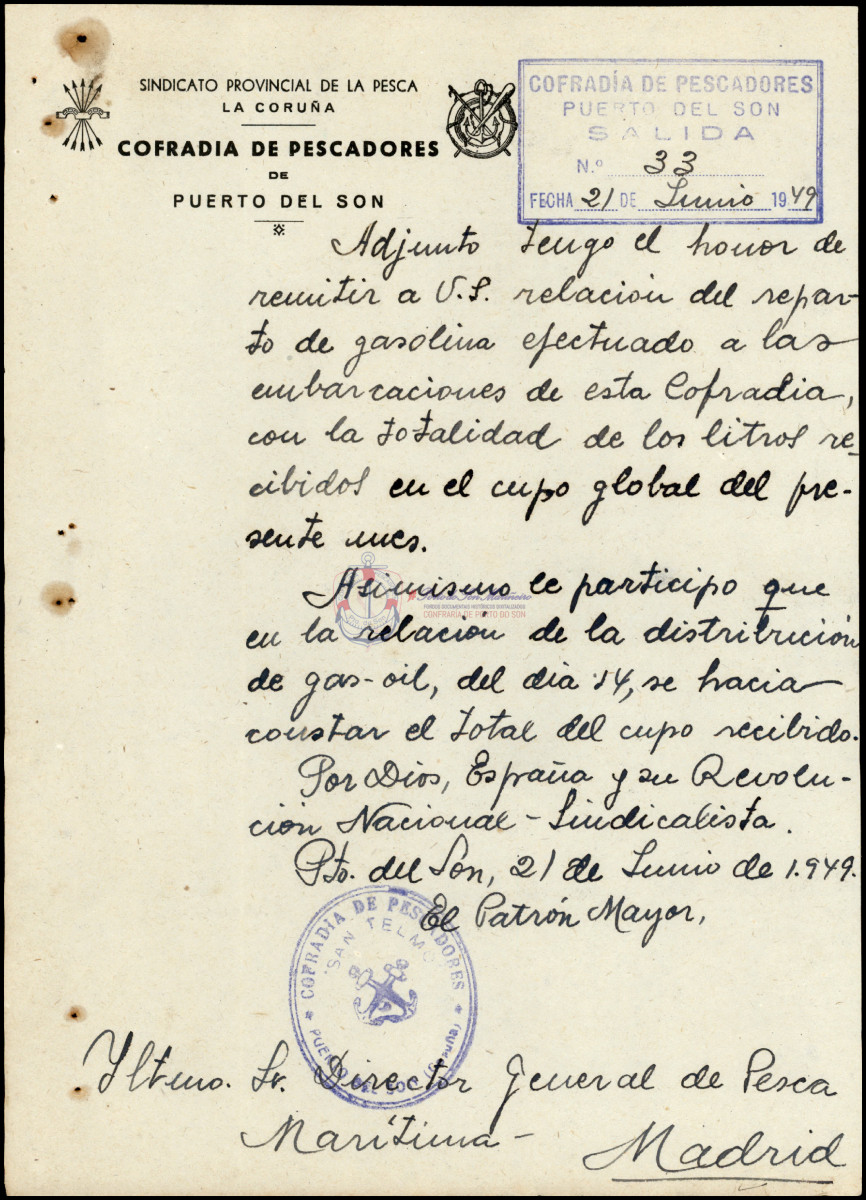 SINDICATO PROVINCIAL DE LA PESCA
LA CORUÑA
COFRADIA DE PESCADORES
DE
PUERTO DEL SON
COFRADÍA DE PESCADORES
PUERTO DEL SON
SALIDA
N.º 33
FECHA 21 DE Junio 1949
Adjunto tengo el honor de
remitir a V.S. relación del repar-
to de gasolina efectuado a las
embarcaciones de esta Cofradia,
con la totalidad de los litros re-
cibidos en el cupo global del pre-
sente mes.
Asimismo le participo que
en la relación de la distribución
de gas-oil, del dia 14, se hacia
constar el total del cupo recibido.
Por Dios, España y su Revolu-
ción Nacional-Sindicalista.
Pto. del Son, 21 de Junio de 1.949.
El Patrón Mayor,
COFRADÍA DE PESCADORES
"SAN TELMO"
PUERTO DEL SON (Coruña)
Iltmo. Sr. Director General de Pesca
Marítima-
Madrid
FONDOS DOCUMENTAIS HISTÓRICOS DIXITALIZADOS
CONFRARÍA DE PORTO DO SON